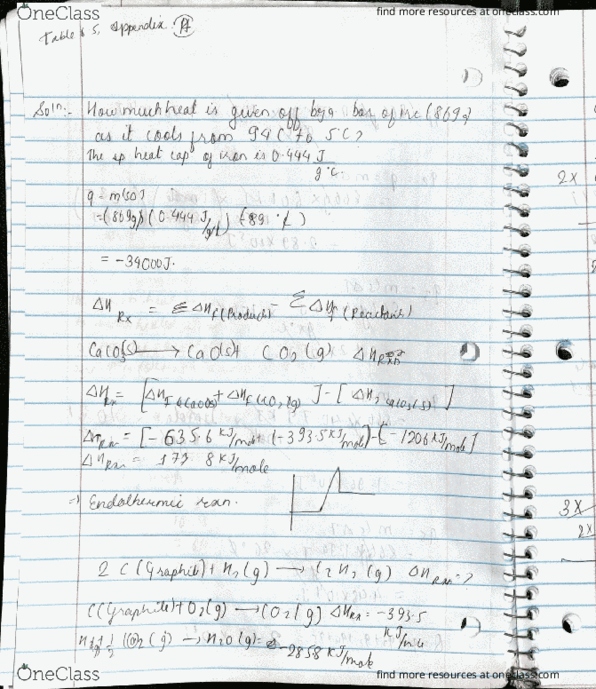 OneClass
find more resources at oneclass.com
Table 6.5, Appendix A
Soln:- How much heat is given off by a bar of (869g)
as it cools from 94C to 5C?
The sp heat cap of iron is 0.444 J
g°C
q = ms∆T
=(869g)(0.444 J/g°C) (-89 °C)
= -34000J.
∆H Rx = Σ∆H f(Product) - Σ∆H f (Reactants)
CaCO3(s) → CaO(s) + CO2(g) ∆H Rxn
∆H Rx = [∆H f (CaO(s)) + ∆H f (CO2)(g)] - [∆H f CaCO3(s)]
∆H Rxn = [-635.6 KJ/mole (-393.5 KJ/mole)] - [-1206 KJ/mole]
∆H Rxn = 177.8 KJ/mole
⇒ Endothermic rxn.
2 C (Graphite) + H2(g) → C2H2 (g) ∆H Rxn = ?
C(Graphite) + O2(g) → CO2(g) ∆H Rxn = -393.5
KJ/mole
H2 + 1/2 O2 (g) → H2O (g) = -285.8 KJ/mole
OneClass
find more resources at oneclass.com
3X
2X
2X